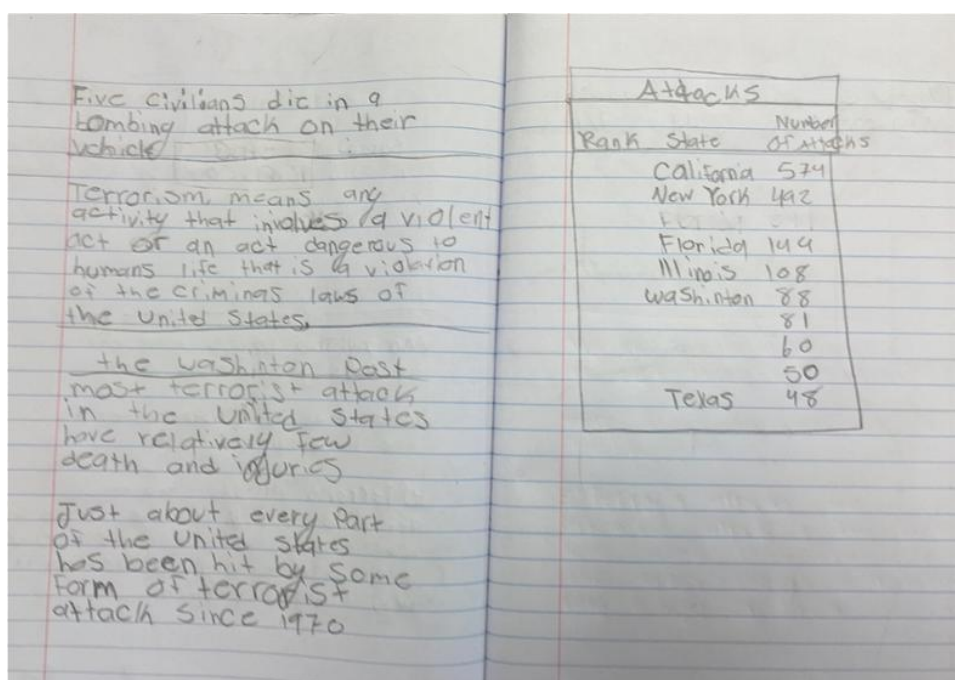 Five civilians die in a
bombing attack on their
vehicle
Terrorism, means any
activity that involves a violent
act or an act dangerous to
humans life that is a violation
of the criminas laws of
the United States.
the washinton Post
most terrorist attack
in the united states
have relatively few
death and injuries
Just about every Part
of the United states
has been hit by some
form of terrorist
attack since 1970
Attacks
Number
Rank State Of Attacks
California 574
New York 492
Florida 144
Illinois 108
washinton 88
81
60
50
Texas 48